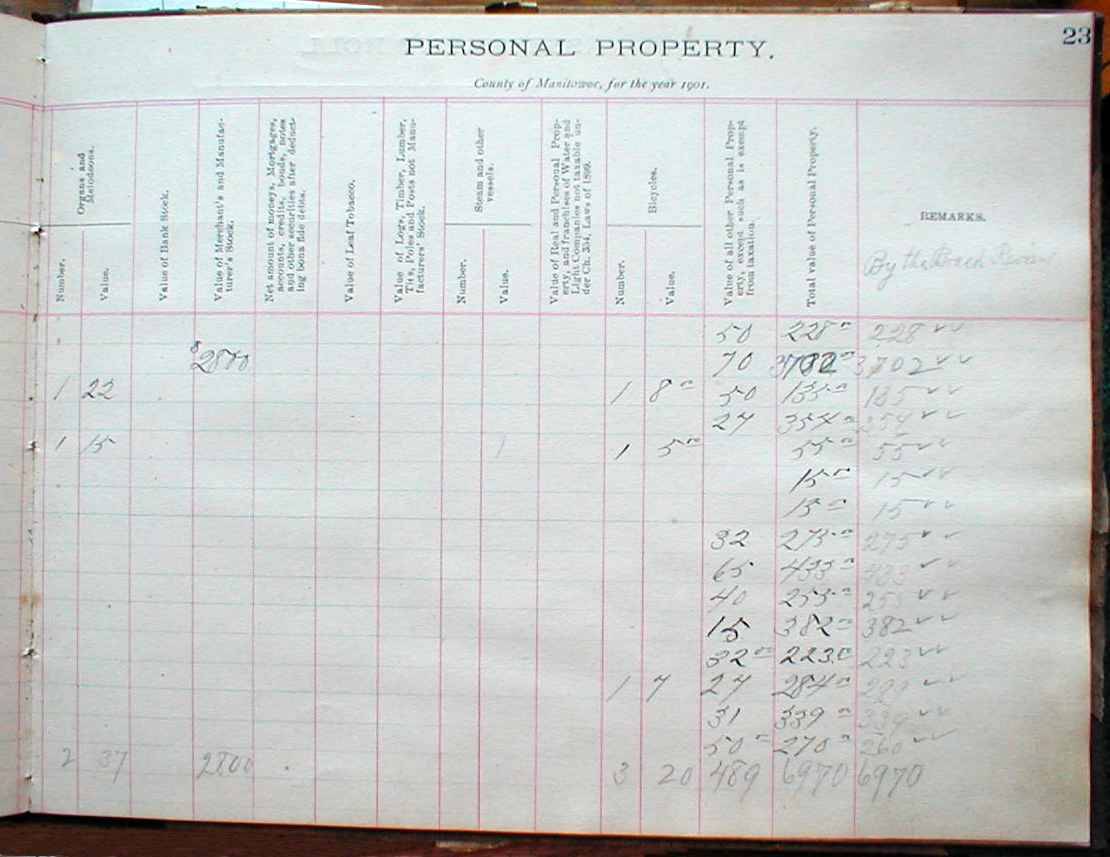 23
PERSONAL PROPERTY.
County of Manitowoc, for the year 1901.
Organs and Melodeons.
Number.
Value.
Value of Bank Stock.
Value of Merchant's and Manufacturer's Stock.
Net amount of moneys, Mortgages, accounts, credits, bonds, notes and other securities after deducting bona fide debts.
Value of Leaf Tobacco.
Value of Logs, Timber, Lumber, Ties, Poles and Posts not Manufacturers' Stock.
Steam and other vessels.
Number.
Value.
Value of Real and Personal Property, and franchises of Water and Light Companies not taxable under Ch. 354, Laws of 1899.
Bicycles.
Number.
Value.
Value of all other Personal Property, except such as is exempt from taxation.
Total value of Personal Property.
REMARKS.
By the Board Review
50 228 228
$2800 70 3702 3702
1 22 1 8 50 135 135
27 354 354
1 15 1 1 5 55 55
15 15
15 15
32 275 275
65 433 433
40 253 253
15 382 382
32 223 223
1 7 27 284
31 339 339
50 270 260
2 37 2800 3 20 489 6970 6970